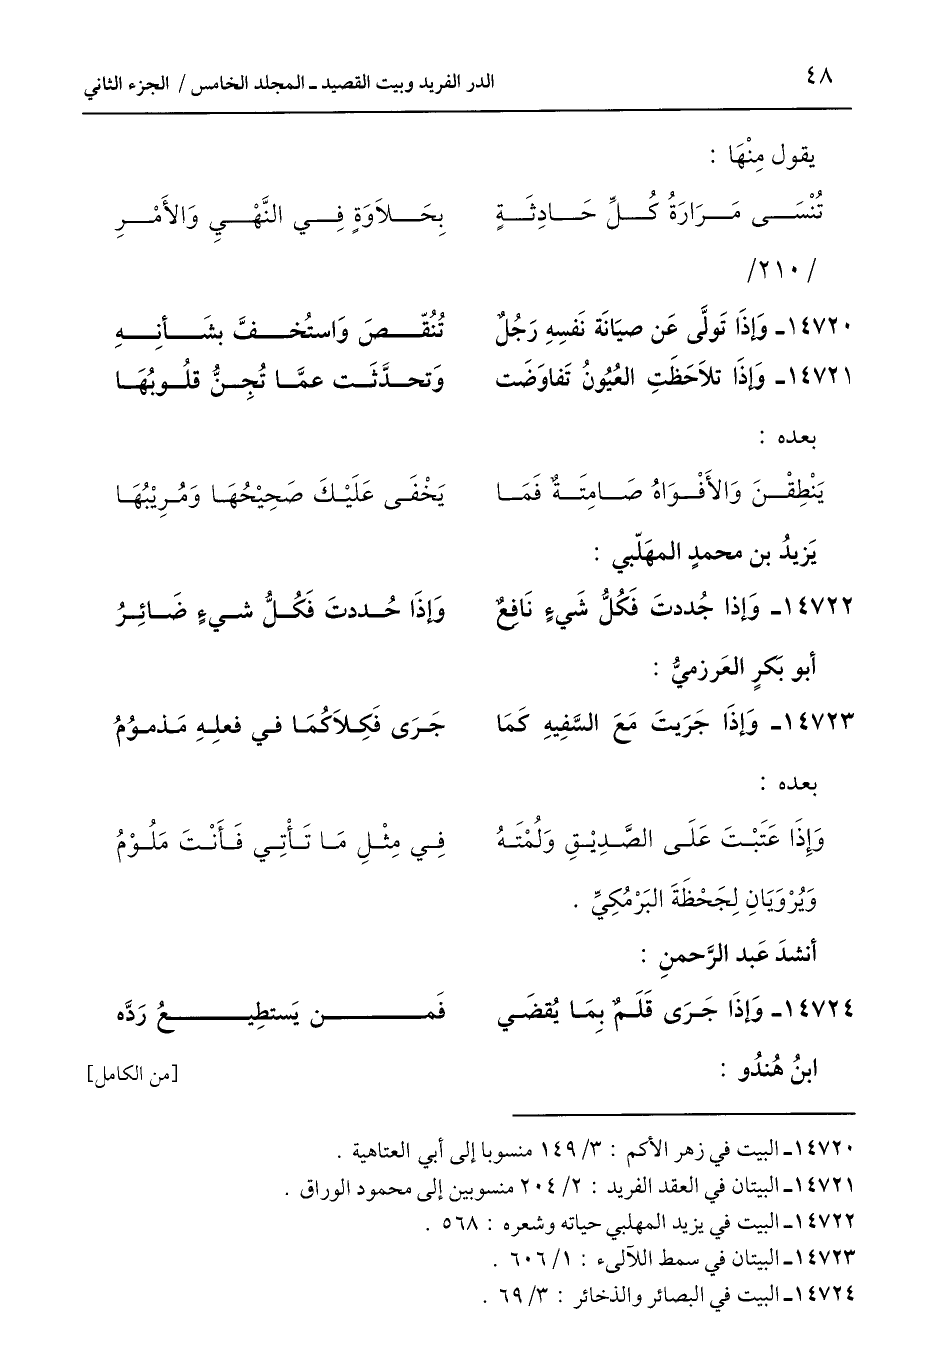 ٤٨ الدر الفريد وبيت القصيد ـ المجلد الخامس / الجزء الثاني
يقول مِنْهَا :
تُنْسَى مَرَارَةُ كُلِّ حَادِثَةٍ بِحَلاَوَةٍ فِي النَّهْيِ وَالأَمْرِ
/٢١٠/
١٤٧٢٠ـ وَإِذَا تَولَّى عَن صيَانَة نَفسِهِ رَجُلٌ تُنُقِّصَ وَاستُخفَّ بشَأنِهِ
١٤٧٢١ـ وَإِذَا تلاَحَظَتِ العُيُونُ تَفاوَضَت وَتحدَّثَت عمَّا تُجِنُّ قلُوبُهَا
بعده :
يَنْطِقْنَ وَالأَفْوَاهُ صَامِتَةٌ فَمَا يَخْفَى عَلَيْكَ صَحِيْحُهَا وَمُرِيْبُهَا
يَزيدُ بن محمدٍ المهَلّبي :
١٤٧٢٢ـ وَإِذا جُددتَ فَكُلُّ شَيءٍ نَافِعٌ وَإِذَا حُددتَ فَكُلُّ شيءٍ ضَائِرُ
أبو بَكرٍ العَرزميُّ :
١٤٧٢٣ـ وَإِذَا جَرَيتَ مَعَ السَّفِيهِ كَمَا جَرَى فَكِلاَكُمَا في فعلِهِ مَذمومُ
بعده :
وَإِذَا عَتَبْتَ عَلَى الصَّدِيْقِ وَلُمْتَهُ فِي مِثْلِ مَا تَأْتِي فَأَنْتَ مَلُوْمُ
وَيُرْوَيَانِ لِجَحْظَةَ البَرْمُكِيِّ .
أنشدَ عَبد الرَّحمنِ :
١٤٧٢٤ـ وَإِذَا جَرَى قَلَمٌ بِمَا يُقضَي فَمن يَستطِيعُ رَدَّه
ابنُ هُندُو : [من الكامل]
١٤٧٢٠ـ البيت في زهر الأكم : ٣/ ١٤٩ منسوبا إلى أبي العتاهية .
١٤٧٢١ـ البيتان في العقد الفريد : ٢/ ٢٠٤ منسوبين إلى محمود الوراق .
١٤٧٢٢ـ البيت في يزيد المهلبي حياته وشعره : ٥٦٨ .
١٤٧٢٣ـ البيتان في سمط اللآلىء : ١/ ٦٠٦ .
١٤٧٢٤ـ البيت في البصائر والذخائر : ٣/ ٦٩ .